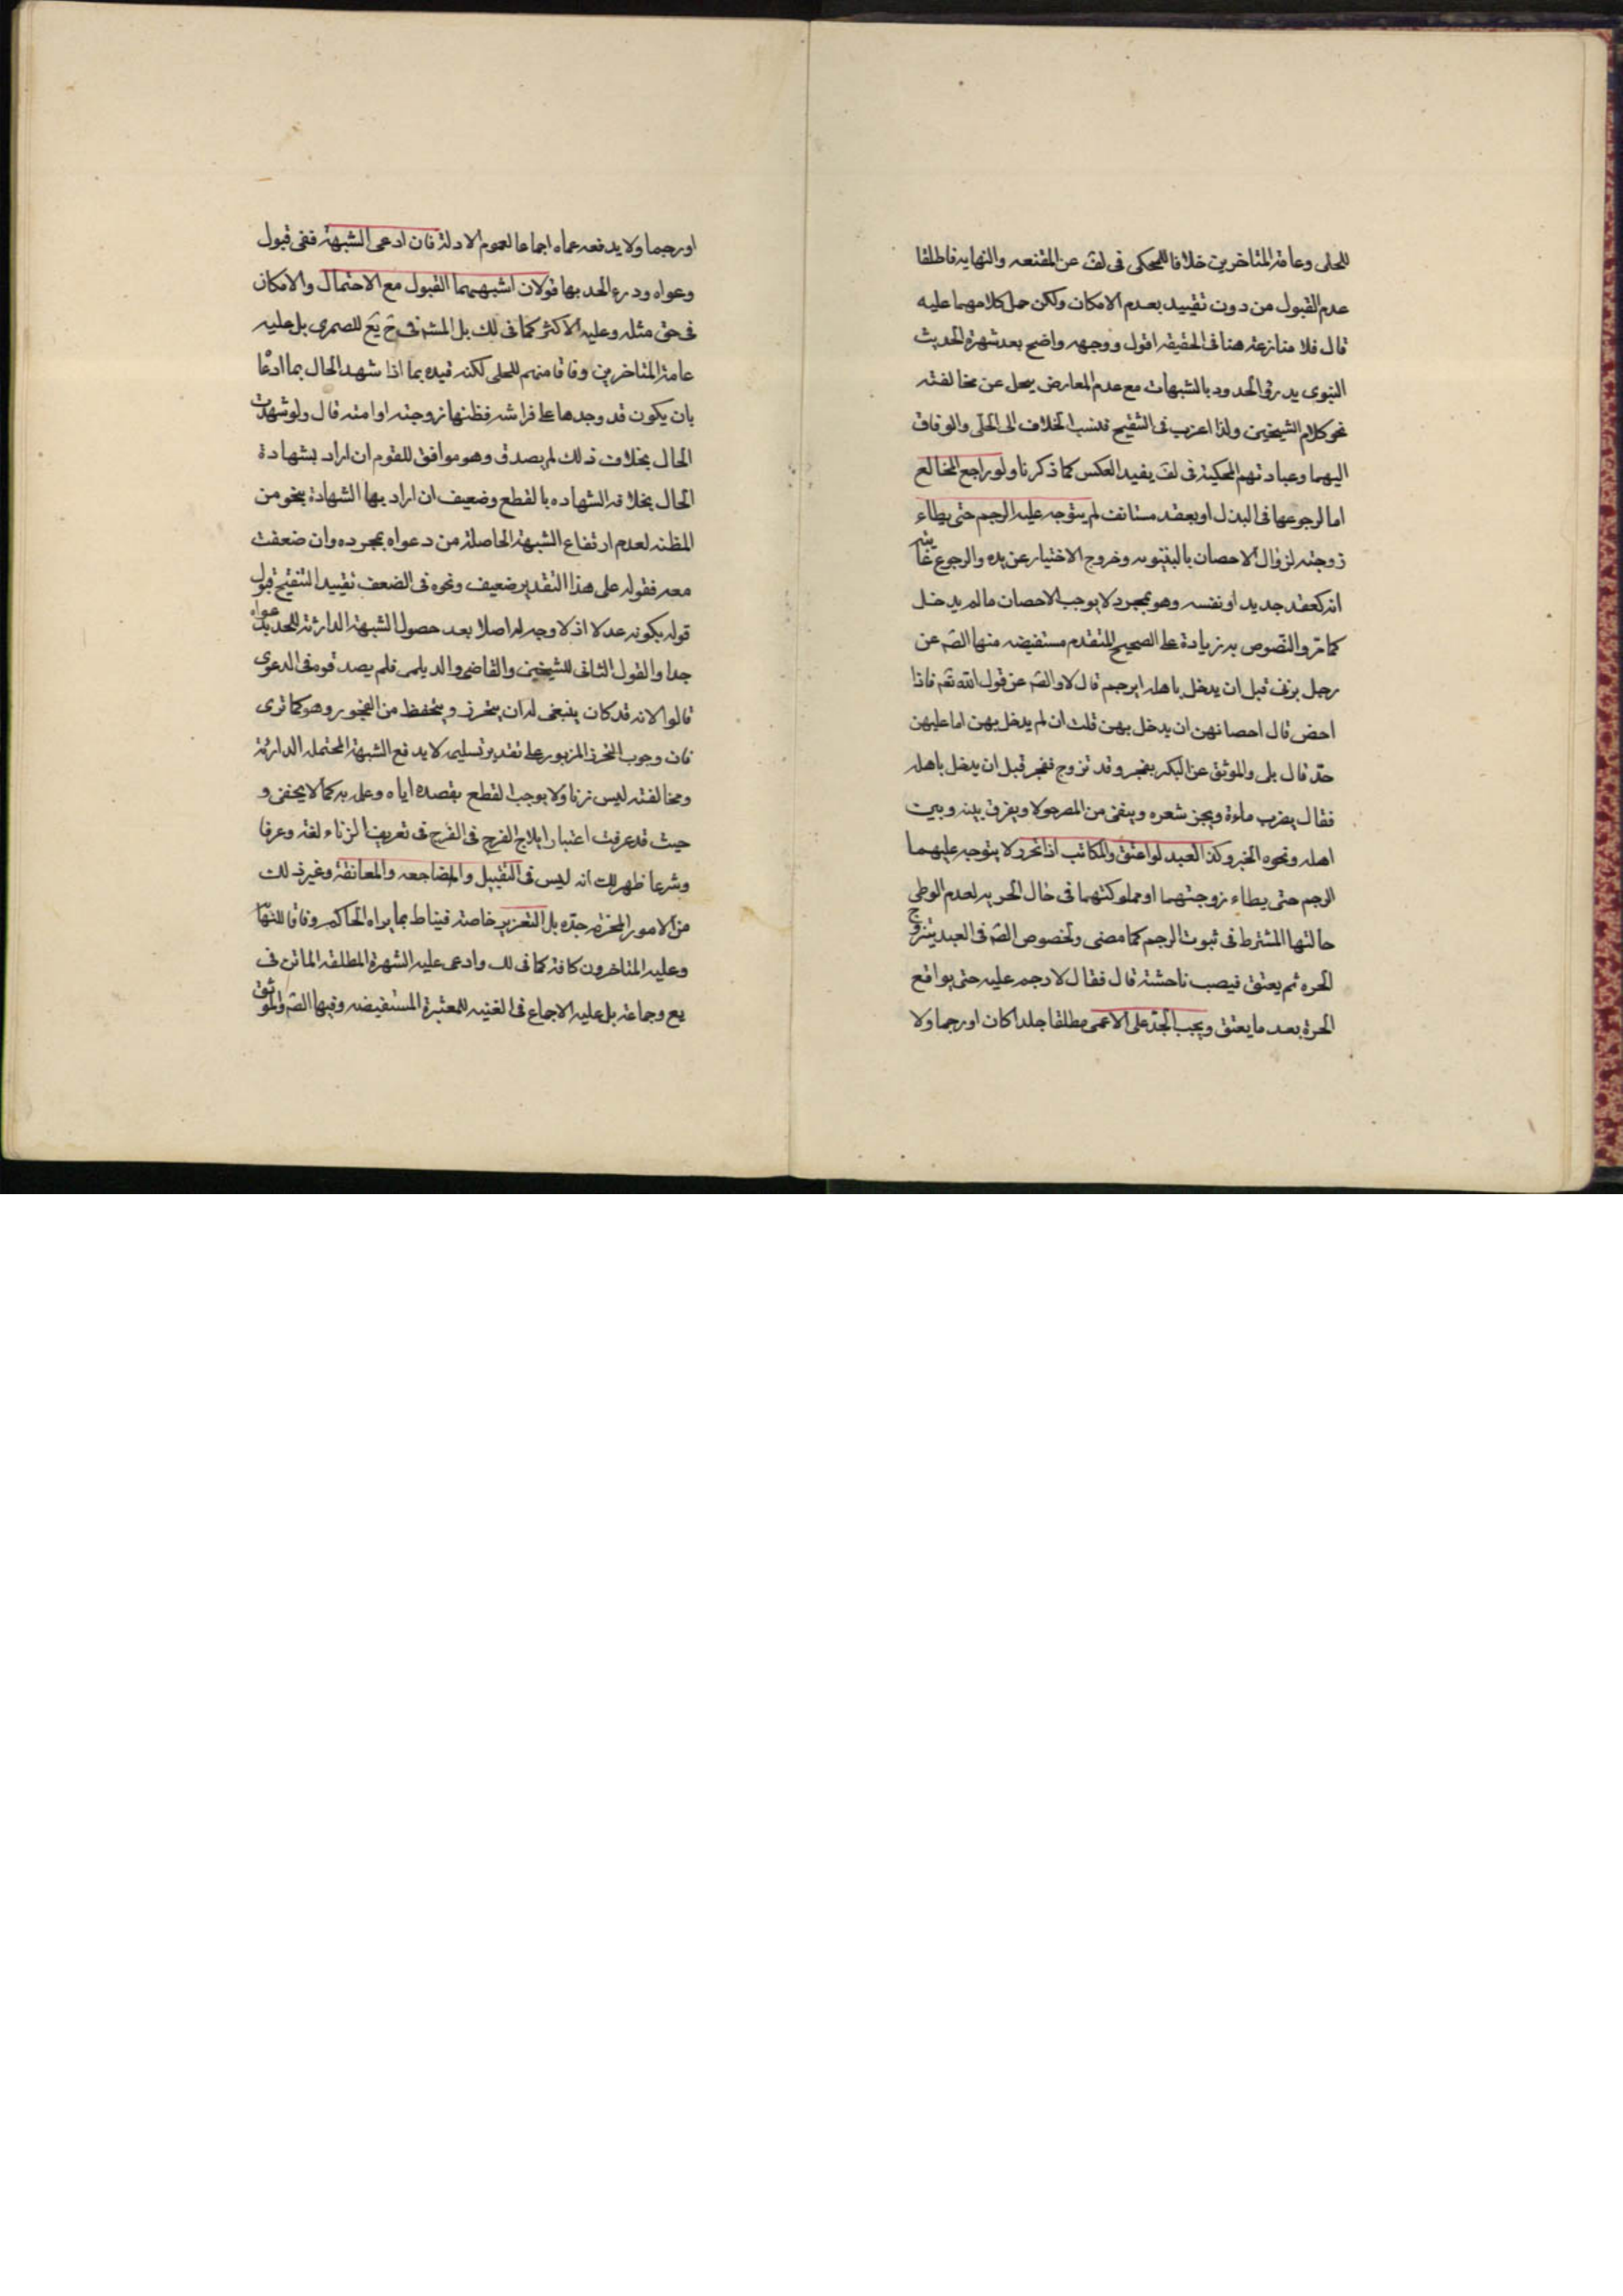 للحلى وعامة المتاخرين خلافا للمحكى فى لف عن المقنعه والنهايه فاطلقا
عدم القبول من دون تقييد بعدم الامكان ولكن حمل كلامهما عليه
قال فلا منازعة هنا فى الحقيقه اقول ووجهه واضح بعد شهرة الحديث
النبوى يدرؤ الحدود بالشبهات مع عدم المعارض يحمل عن مخالفته
نحو كلام الشيخين ولذا اعزب فى التنقيح فنسب الخلاف الى الحلى والوفاق
اليهما وعبادتهم المحكية فى لف يفيد العكس كما ذكرنا ولو راجع المخالع
اما لرجوعها فى البذل او بعقد مستانف لم يتوجه عليه الرجم حتى يطاء
زوجته لزوال الاحصان بالبينونه وخروج الاختيار عن يده والرجوع
انه كعقد جديد او نفسه وهو بمجرده لا يوجب الاحصان ما لم يدخل
كما مر والنصوص به زيادة على الصحيح المتقدم مستفيضه منها الصّ عن
رجل يزنى قبل ان يدخل باهله ايرجم قال لا والصّ عن قول الله تعّ فاذا
احصن قال احصانهن ان يدخل بهن قلت ان لم يدخل بهن اما عليهن
حدّ قال بلى والموثق عن البكر يفجر وقد تزوج ففجر قبل ان يدخل باهله
فقال يضرب ماءة ويجز شعره وينفى من المصر حولا ويفرق بينه وبين
اهله ونحوه الخبر وكذا العبد لو اعتق والمكاتب اذا تحرر لا يتوجه عليهما
الرجم حتى يطاء زوجتهما او مملوكتهما فى حال الحريه لعدم الوطى
حالتها المشترط فى ثبوت الرجم كما مضى ولخصوص الصّ فى العبد يتزوج
الحره ثم يعتق فيصب فاحشة قال فقال لا رجم عليه حتى يواقع
الحرة بعد ما يعتق ويجب الحدّ على الاعمى مطلقا جلدا كان او رجما ولا
او رجما ولا يدفعه عماه اجماعا لعموم الادلة فان ادعى الشبهة ففى قبول
دعواه ودرء الحد بها قولان اشبههما القبول مع الاحتمال والامكان
فى حق مثله وعليه الاكثر كما فى لك بل المشه فى ح يع للصمرى بل عليه
عامة المتاخرين وفاقا منهم للحلى لكنه قيده بما اذا شهد الحال بما ادعا
بان يكون قد وجدها على فراشه فظنها زوجته او امته قال ولو شهدت
الحال بخلاف ذلك لم يصدق وهو موافق للقوم ان اراد بشهادة
الحال بخلافه الشهاده بالقطع وضعيف ان اراد بها الشهادة بنحو من
المظنه لعدم ارتفاع الشبهة الحاصلة من دعواه بمجرده وان ضعفت
معه فقوله على هذا التقدير ضعيف ونحوه فى الضعف تقييد التنقيح قبول
قوله بكونه عدلا اذ لا وجه له اصلا بعد حصول الشبهة الدارئة للحد بدعواه
جدا والقول الثانى للشيخين والقاضى والديلمى فلم يصدقوه فى الدعوى
قالوا لانه قد كان ينبغى له ان يتحرز ويتحفظ من الفجور وهو كما ترى
فان وجوب التحرز المزبور على تقدير تسليمه لا يدفع الشبهة المحتمله الدارئة
ومخالفته ليس زنا ولا يوجب القطع بقصده اياه وعلمه به كما لا يخفى و
حيث قد عرفت اعتبار ايلاج الفرج فى الفرج فى تعريف الزناء لغة وعرفا
وشرعا ظهر لك انه ليس فى التقبيل والمضاجعه والمعانقة وغير ذلك
من الامور المحرمه حدّه بل التعزير خاصة فيناط بما يراه الحاكم وفاقا للنها
وعليه المتاخرون كافة كما فى لك وادعى عليه الشهرة المطلقه الماتن فى
يع وجماعة بل عليه الاجماع فى الغنيه للمعتبرة المستفيضه وفيها الصّ والموثق